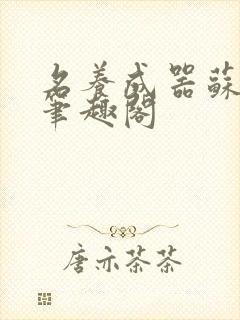 名養成器蘇
筆趣閣
唐亦茶茶